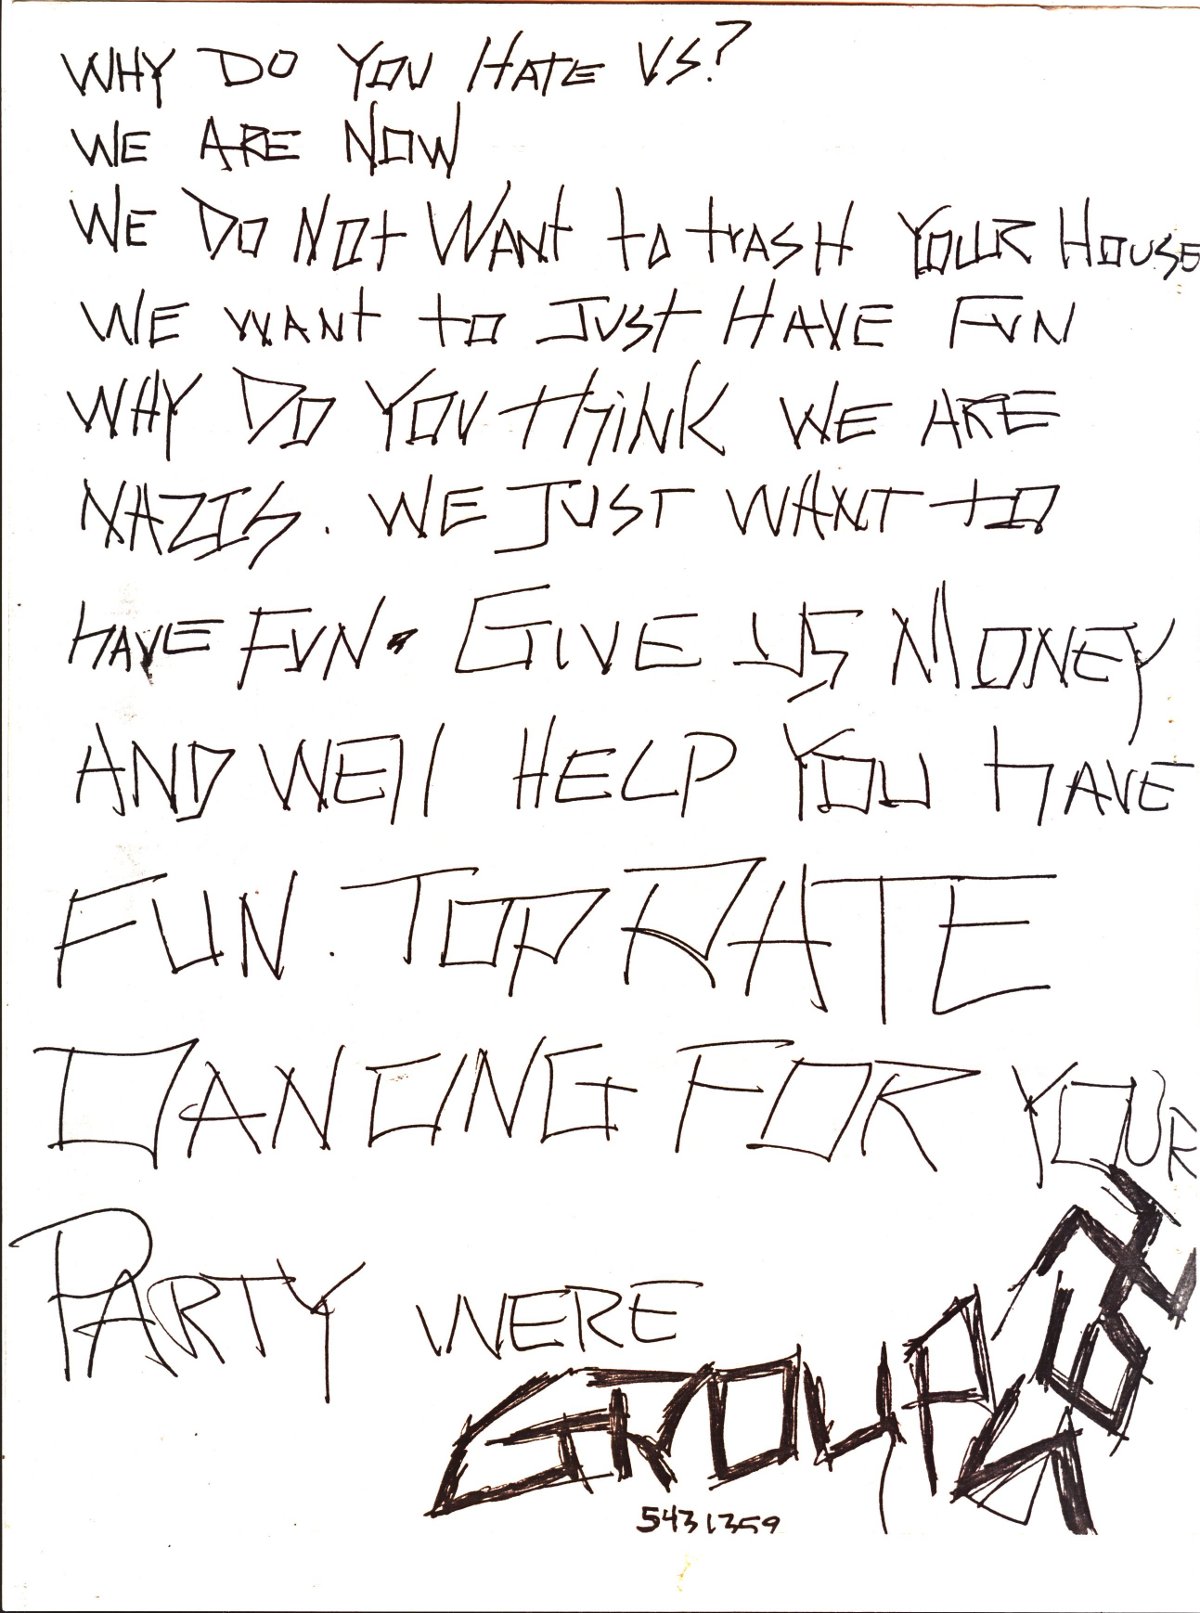 WHY DO YOU HATE US?
WE ARE NOW
WE DO NOT WANT to trASH YOUR HOUSE
WE WANt to JUSt HAVE FUN
WHY DO YOU tHiNK WE ARE
NAZIS. WE JUST WANT to
hAVE FUN. GIVE US MONEY
AND WEll HELP YOU hAVE
FUN. TOP RATE
DANCING FOR YOUR
PARTY WERE
GROUP
5431359